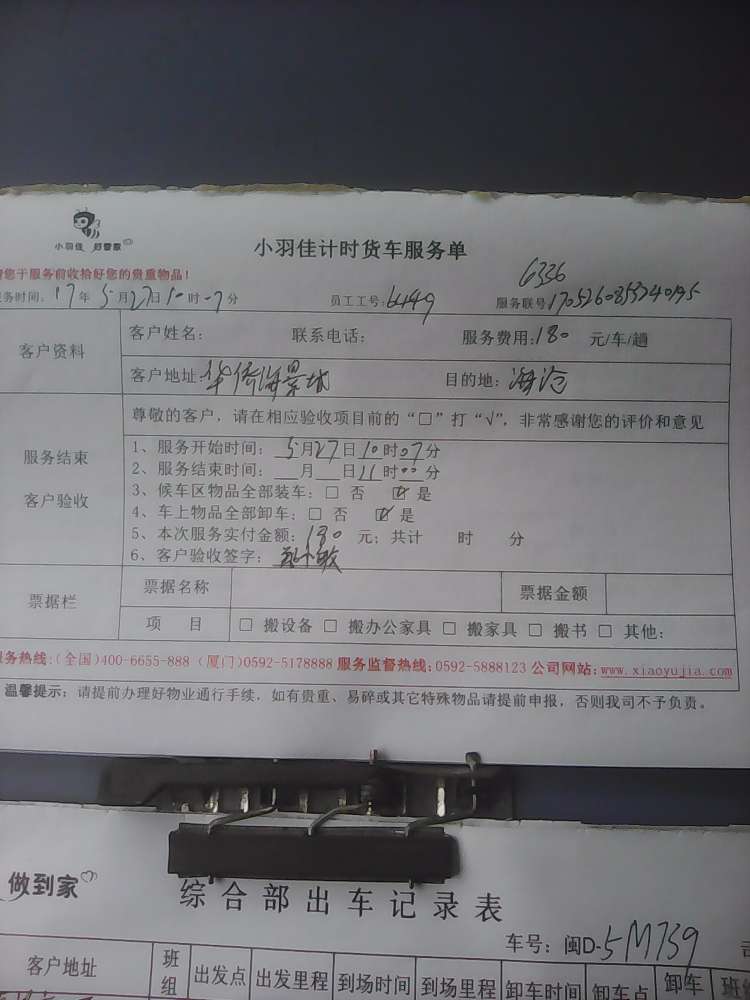 小羽佳 好管家
小羽佳计时货车服务单
您于服务前收拾好您的贵重物品!
6336
务时间: 17年5月27日10时07分 员工工号: 6449 服务联号:
客户资料
客户姓名: 联系电话: 服务费用: 180 元/车/趟
客户地址: 华侨海景城 目的地: 海沧
服务结束
客户验收
尊敬的客户,请在相应验收项目前的“□”打“√”,非常感谢您的评价和意见
1、服务开始时间: 5月27日10时07分
2、服务结束时间: __月__日11时00分
3、候车区物品全部装车: □ 否 ☑ 是
4、车上物品全部卸车: □ 否 ☑ 是
5、本次服务实付金额: 180 元; 共计 时 分
6、客户验收签字:
票据栏
票据名称 票据金额
项 目 □ 搬设备 □ 搬办公家具 □ 搬家具 □ 搬书 □ 其他:
服务热线:(全国)400-6655-888 (厦门)0592-5178888 服务监督热线:0592-5888123 公司网站:www.xiaoyujia.com
温馨提示: 请提前办理好物业通行手续,如有贵重、易碎或其它特殊物品请提前申报,否则我司不予负责。
做到家
综合部出车记录表
车号: 闽D-5M739
客户地址 班组 出发点 出发里程 到场时间 到场里程 卸车时间 卸车点 卸车